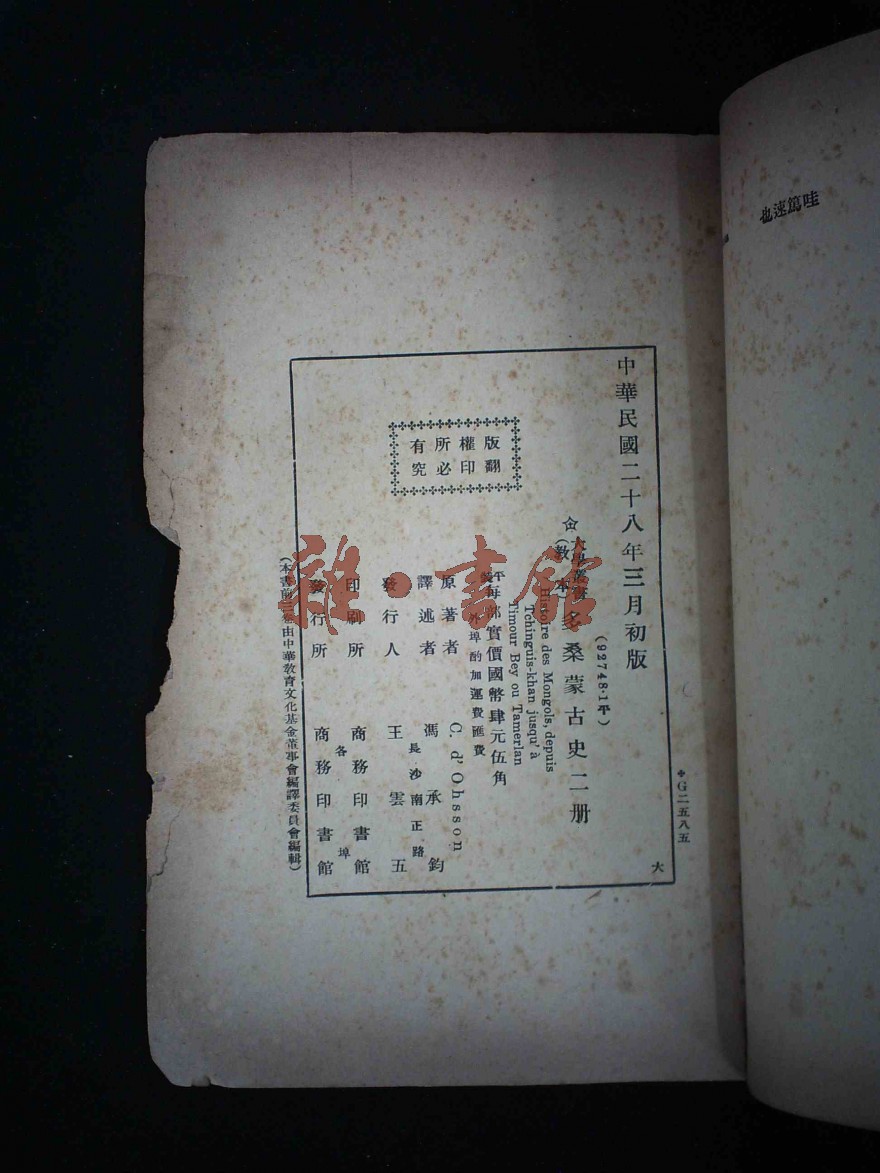 也速篤哇
中華民國二十八年三月初版
(92748·1平)
大學叢書
(教本)
多桑蒙古史二册
Histoire des Mongols, depuis
Tchinguis-khan jusqu'à
Timour Bey ou Tamerlan
每部實價國幣肆元伍角
外埠酌加運費匯費
版權所有
翻印必究
原著者 C. d'Ohsson
譯述者 馮承鈞
發行人 王雲五
長沙南正路
印刷所 商務印書館
發行所 商務印書館
各埠
(本書前三卷由中華教育文化基金董事會編譯委員會編輯)
G二五八五
大
雜·書館